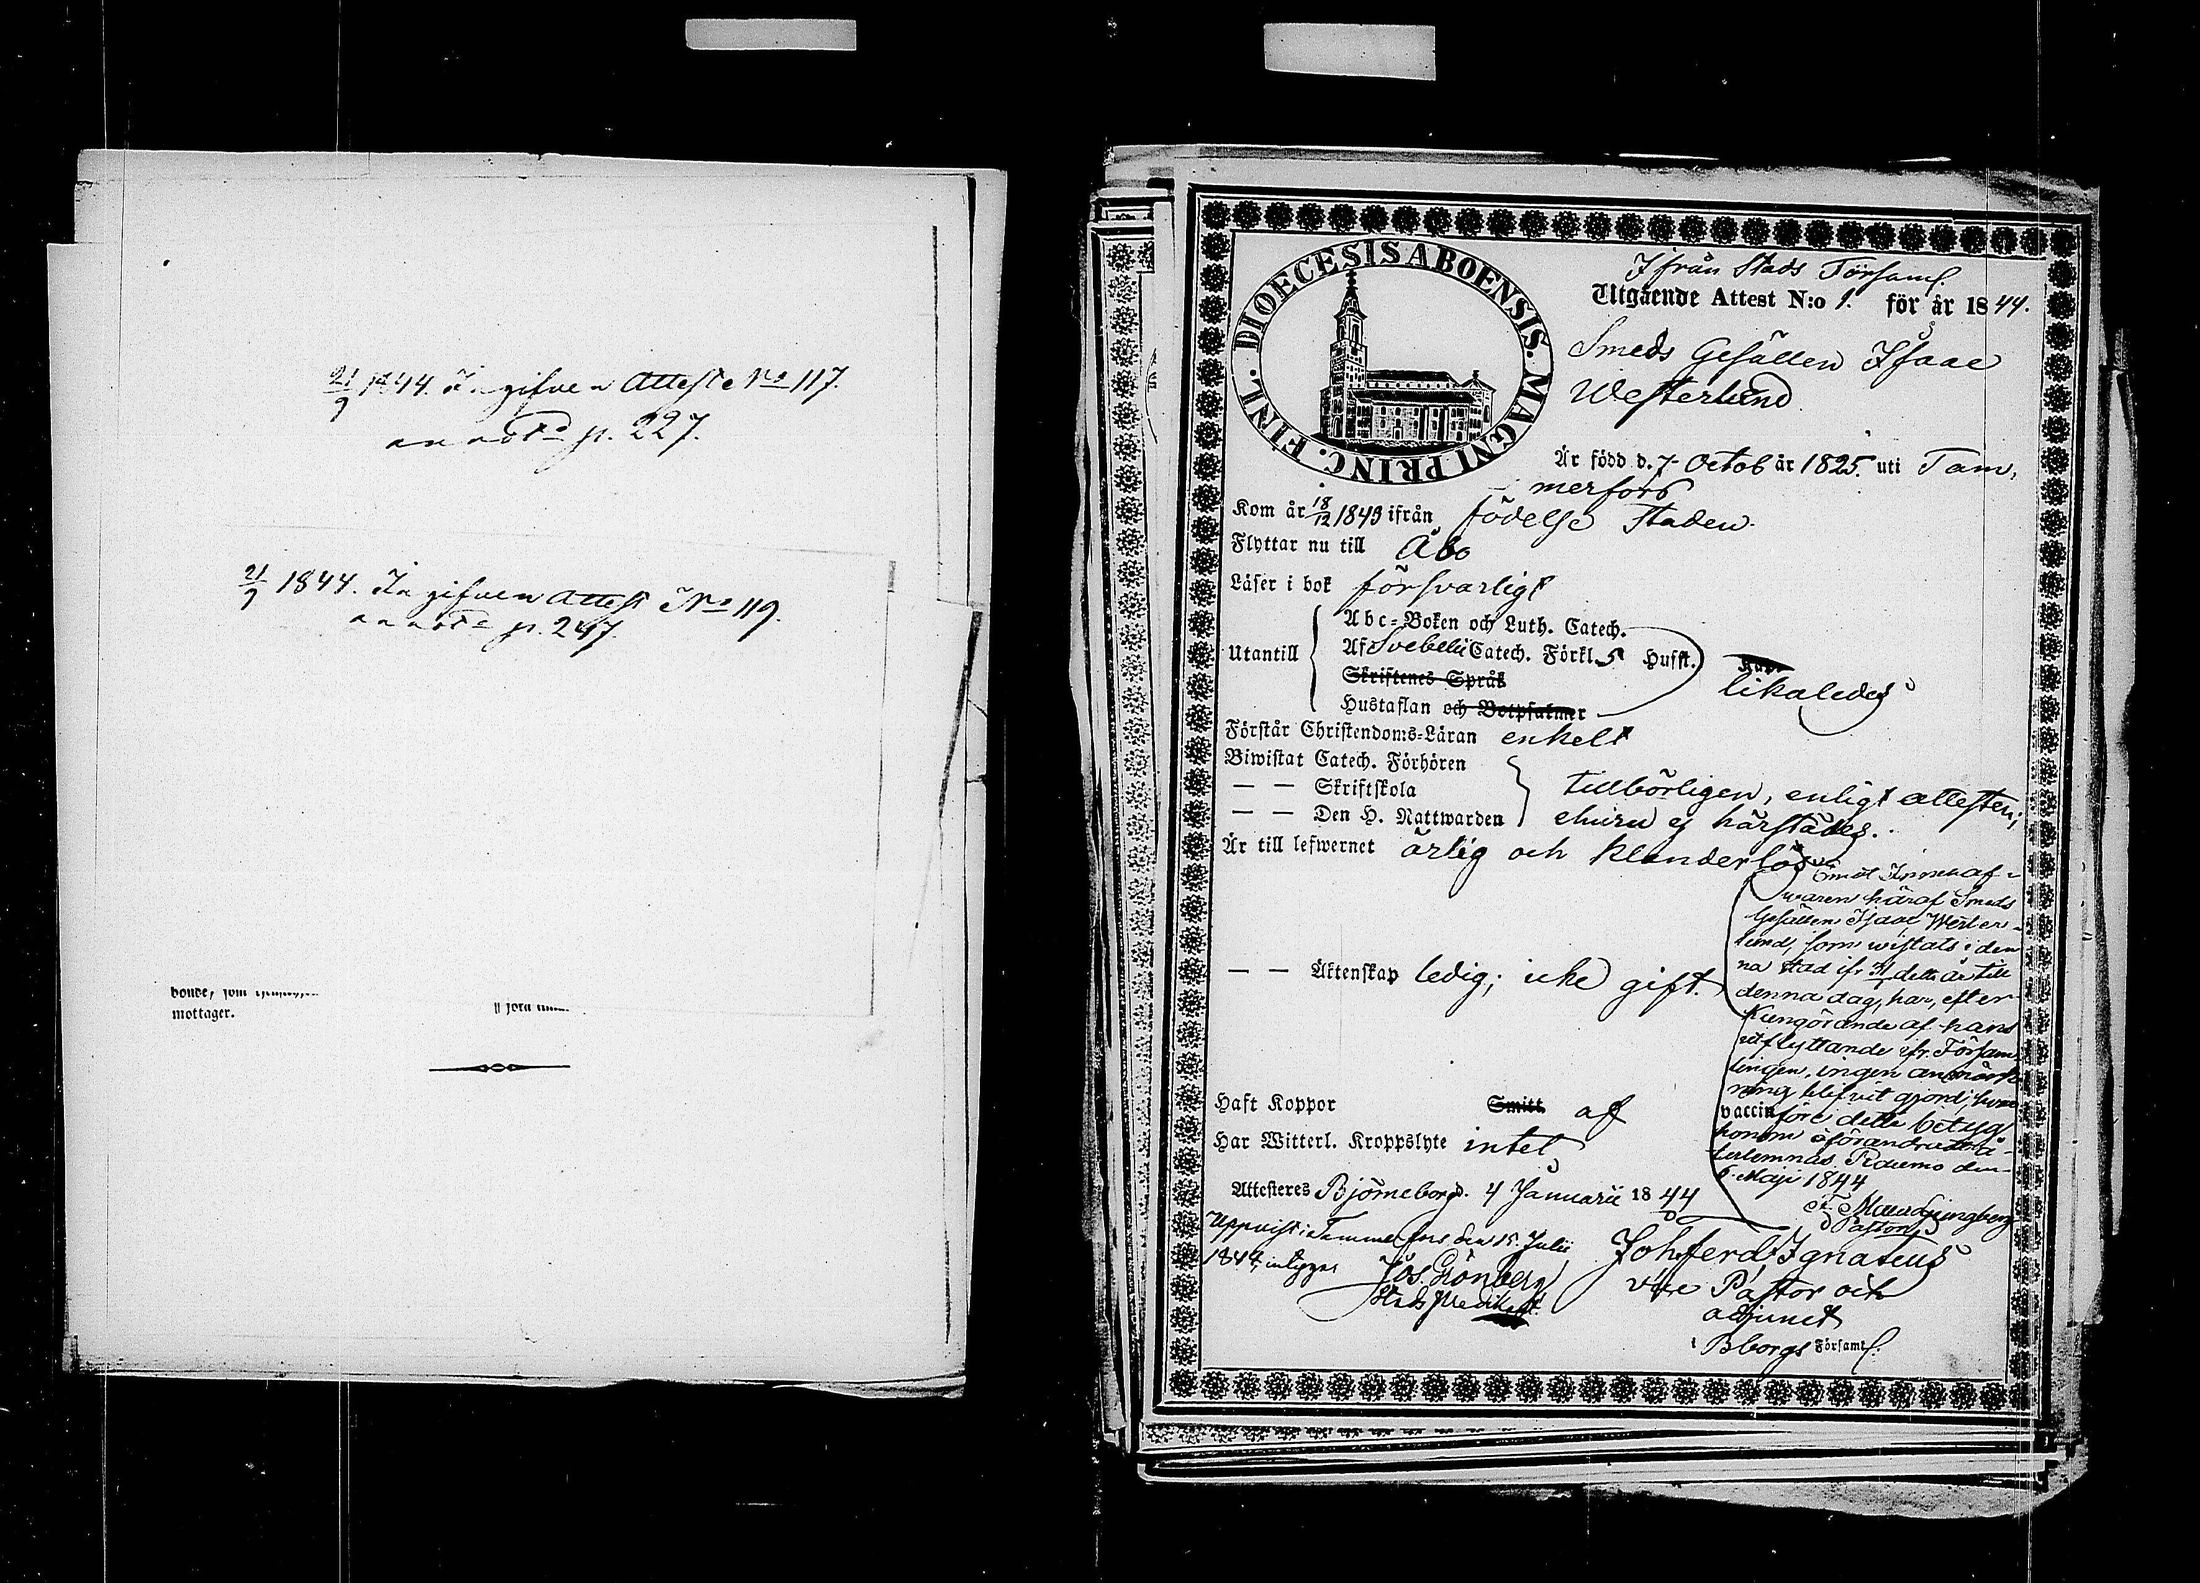 21/9 1844. Ingifven Attest No 117.
annot. p. 227.
21/9 1844. Ingifven Attest No 119.
annot. p. 247.
mottager.
DIOECESIS ABOENSIS. MAGNI PRINC. FINL.
Ifrån Stads Församl.
Utgående Attest N:o 1. för år 1844.
Smeds Gesällen Isaac
Westerlund
Är född d. 7 Octob år 1825. uti Tam,
merfors
Kom år 18/12 1843 ifrån födelse staden.
Flyttar nu till Åbo
Läser i bok försvarligt
Utantill
Abc-Boken och Luth. Catech.
Af Svebelii Catech. Förkl. 5 Hufst.
Skriftenes Språk
Hustaflan och Botpsalmer
likaledes
Förstår Christendoms-Läran enkelt
Biwistat Catech. Förhören
— — Skriftskola
— — Den H. Nattwarden
tillbörligen, enligt attesten;
ehuru ej härstädes.
Är till lefwernet ärlig och klanderlös
— — Äktenskap ledig; icke gift.
Emot Innehaf-
waren häraf Smeds
Gesällen Isaac Wester-
lund, som wistats i den
na stad ifr. detta år till
denna dag, har, efter
Kungörande af hans
utflyttande ifr. Försam-
lingen, ingen anmärk-
ning blifvit gjord; hvar-
före detta betyg
honom oförändradt å-
terlemnas. Raumo den
6. Maji 1844
Pastor
Haft Koppor Smitt. af vaccin
Har Witterl. Kroppslyte intet
Attesteres Björneborg d. 4 Januarii 1844
Uppvist i Tammerfors den 15. Julii
1844, intygar Jos. Grönberg
Joh. Ferd. Ignatius
vice Pastor och
adjunct
i Bborgs Församl.